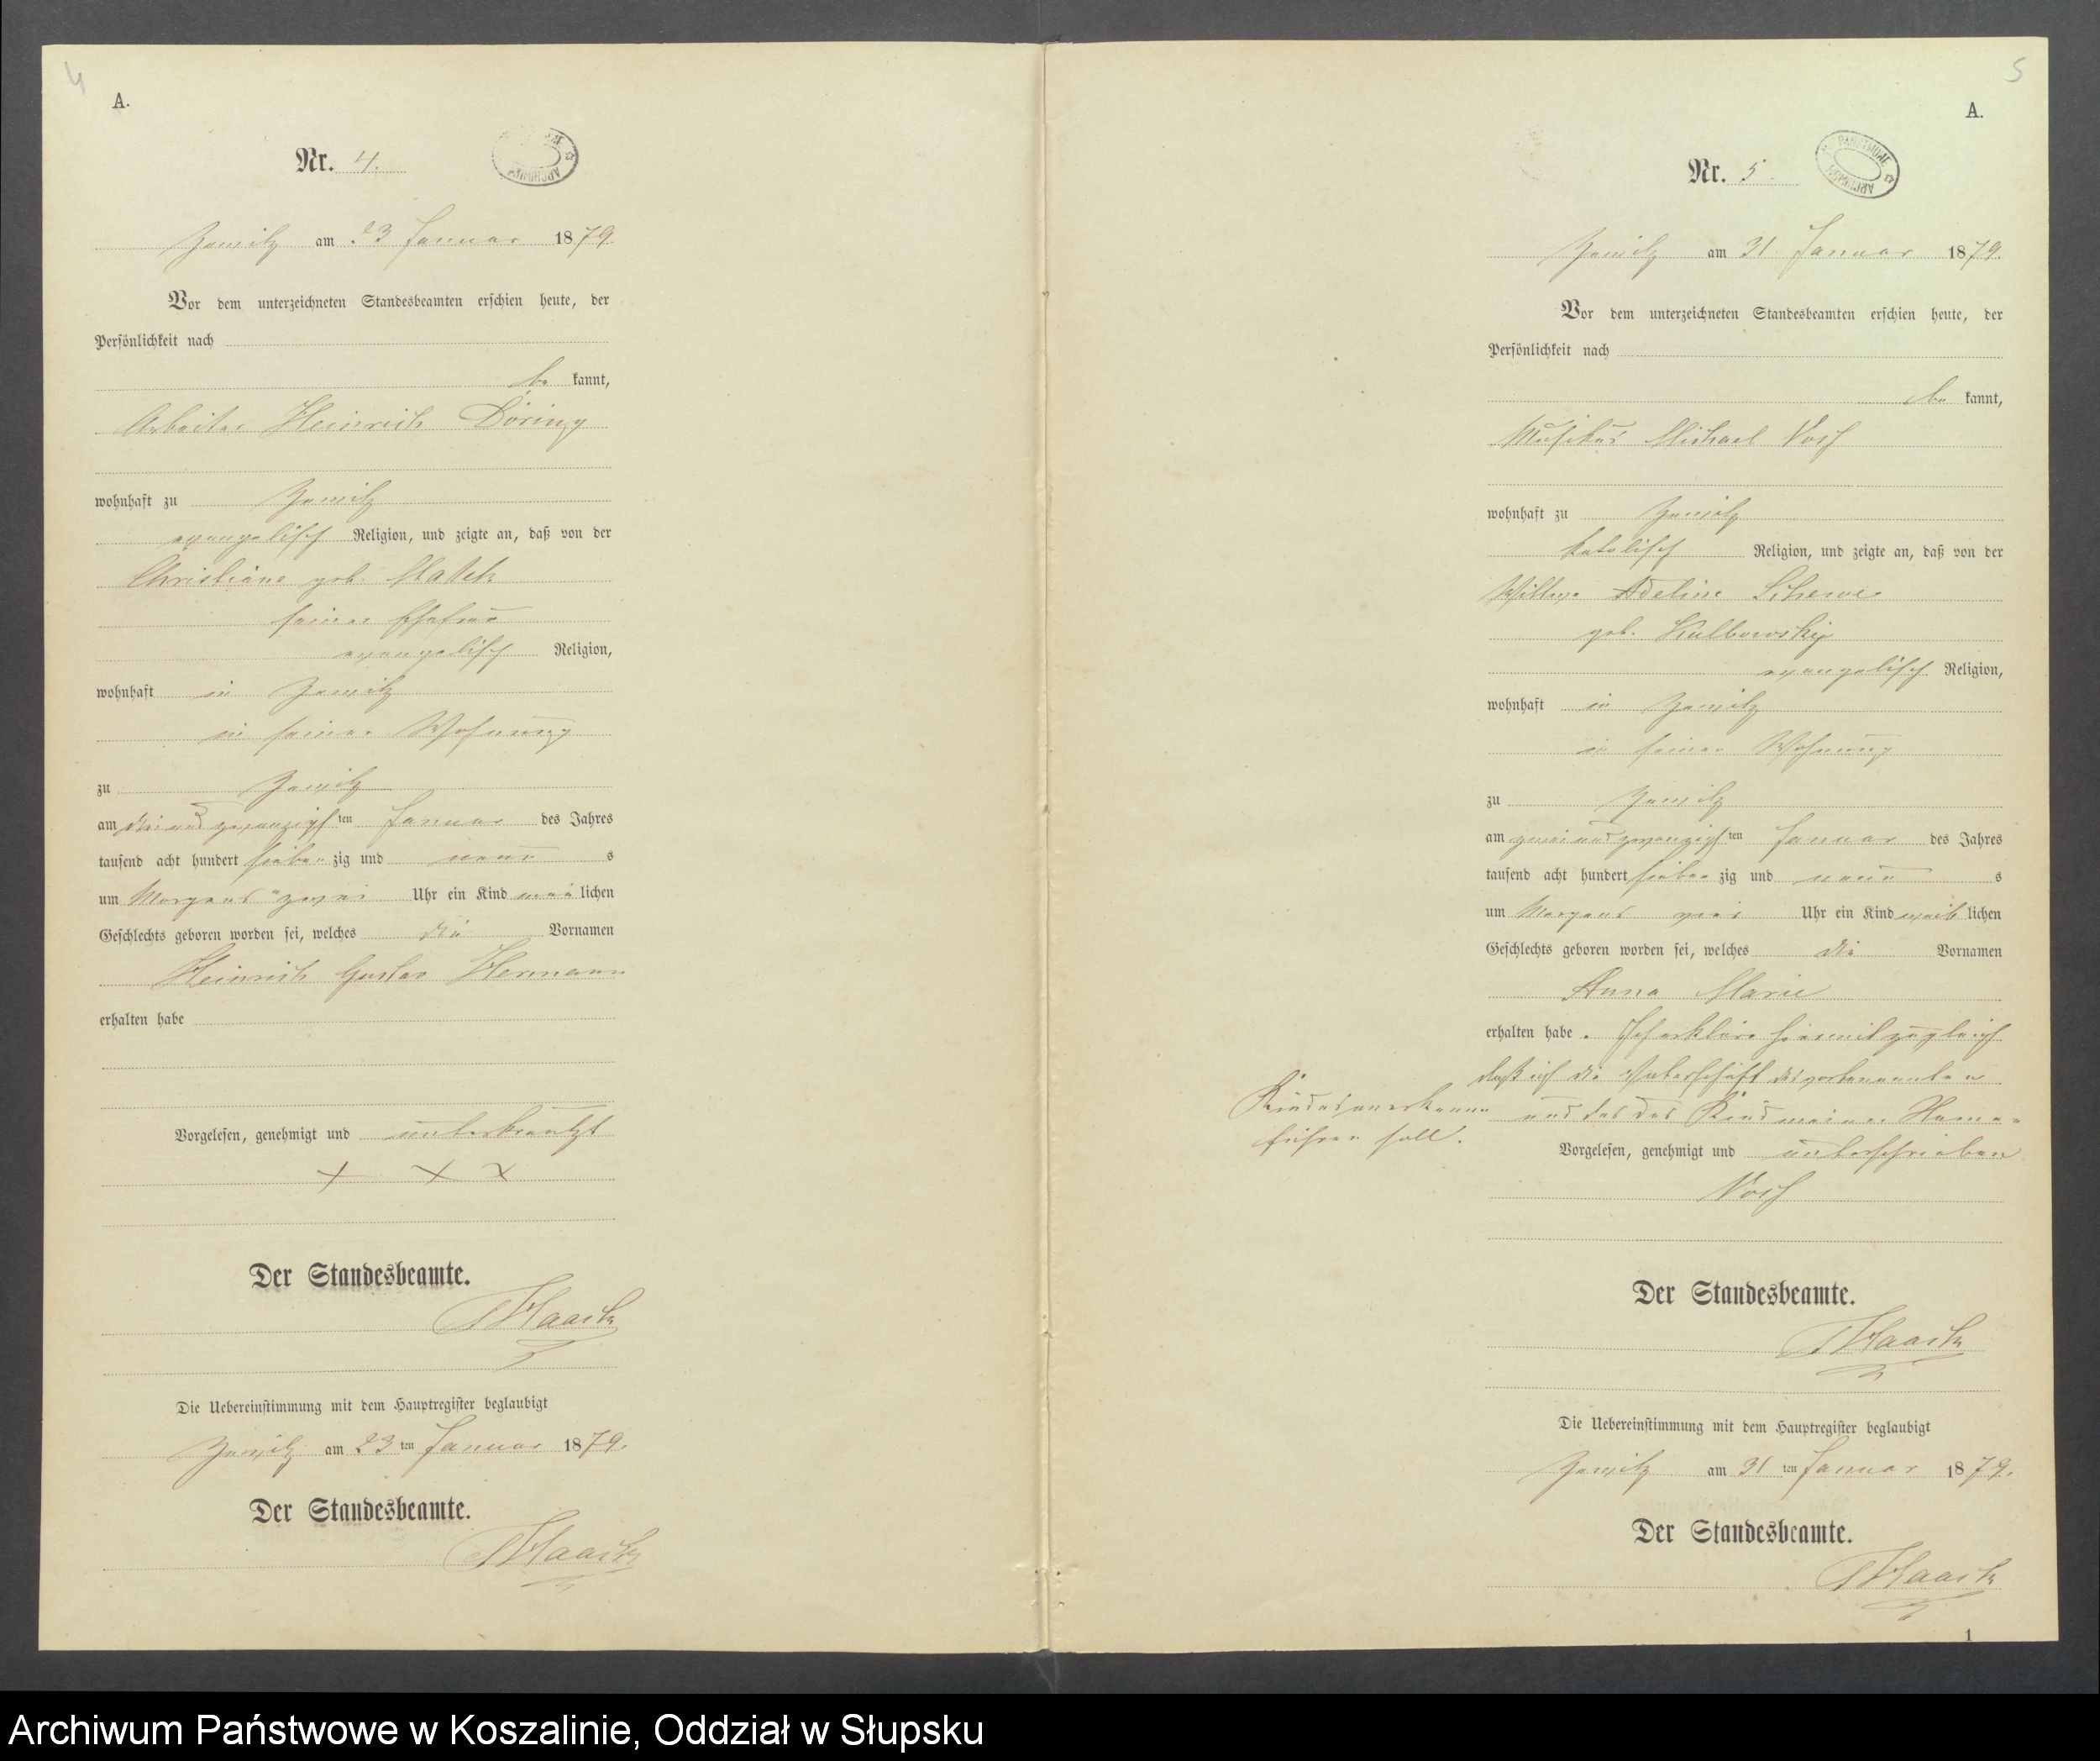 4
A.
Nr. 4.
Zewitz am 23 Januar 1879.
Vor dem unterzeichneten Standesbeamten erschien heute, der
Persönlichkeit nach
be kannt,
Arbeiter Heinrich Döring
wohnhaft zu Zewitz
evangelisch Religion, und zeigte an, daß von der
Christiane geb.
seiner Ehefrau
evangelisch Religion,
wohnhaft in Zewitz
in seiner Wohnung
zu Zewitz
am drei und zwanzigsten Januar des Jahres
tausend acht hundert sieben zig und neun s
um Morgens zwei Uhr ein Kind män lichen
Geschlechts geboren worden sei, welches die Vornamen
Heinrich Gustav Hermann
erhalten habe
Vorgelesen, genehmigt und unterkreutzt
+ + +
Der Standesbeamte.
Haack
Die Uebereinstimmung mit dem Hauptregister beglaubigt
Zewitz am 23 ten Januar 1879.
Der Standesbeamte.
Haack
5
A.
Nr. 5.
ARCHIWUM PAŃSTWOWE
Zewitz am 31. Januar 1879.
Vor dem unterzeichneten Standesbeamten erschien heute, der
Persönlichkeit nach
be kannt,
Musikus Michael Voss
wohnhaft zu Zewitz
katolisch Religion, und zeigte an, daß von der
Wittwe Adeline Scherve
geb. Kulbowsky
evangelisch Religion,
wohnhaft in Zewitz
in seiner Wohnung
zu Zewitz
am zwei und zwanzigsten Januar des Jahres
tausend acht hundert sieben zig und neun s
um Morgens Uhr ein Kind weib lichen
Geschlechts geboren worden sei, welches die Vornamen
Anna Marie
erhalten habe. Ich erkläre hiermit zugleich
daß ich die Vaterschaft des vorbenannten
Kindes anerkenne und das das Kind meinen Name-
führen soll.
Vorgelesen, genehmigt und unterschrieben
Voss
Der Standesbeamte.
Haack
Die Uebereinstimmung mit dem Hauptregister beglaubigt
Zewitz am 31 ten Januar 1879.
Der Standesbeamte.
Haack
1
Archiwum Państwowe w Koszalinie, Oddział w Słupsku